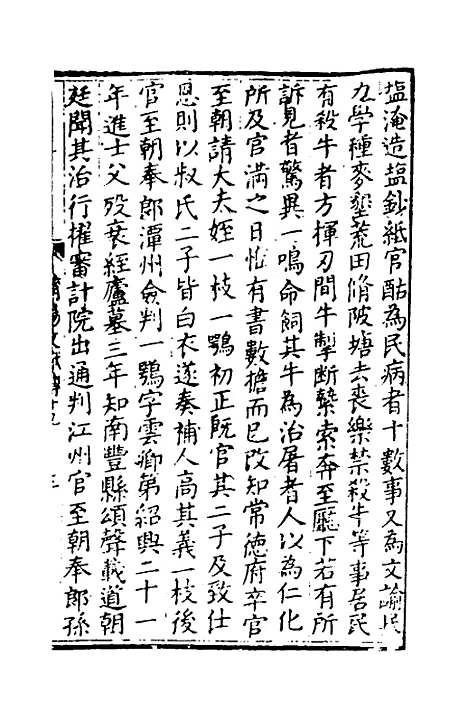 塩淹造塩鈔紙官酤為民病者十數事又為文諭民
九學種麥墾荒田脩陂塘去喪樂禁殺牛等事居民
有殺牛者方揮刃間牛掣斷縶索奔至廳下若有所
訴見者驚異一鳴命飼其牛為治屠者人以為仁化
所及官滿之日惟有書數擔而已改知常徳府卒官
至朝請大夫姪一枝一鶚初正既官其二子及致仕
恩則以叔氏二子皆白衣遂奏補人高其義一枝後
官至朝奉郎潭州僉判一鶚字雲卿第紹興二十一
年進士父殁衰絰廬墓三年知南豐縣頌聲載道朝
廷聞其治行擢審計院出通判江州官至朝奉郎孫
莆陽文獻傳十九
三